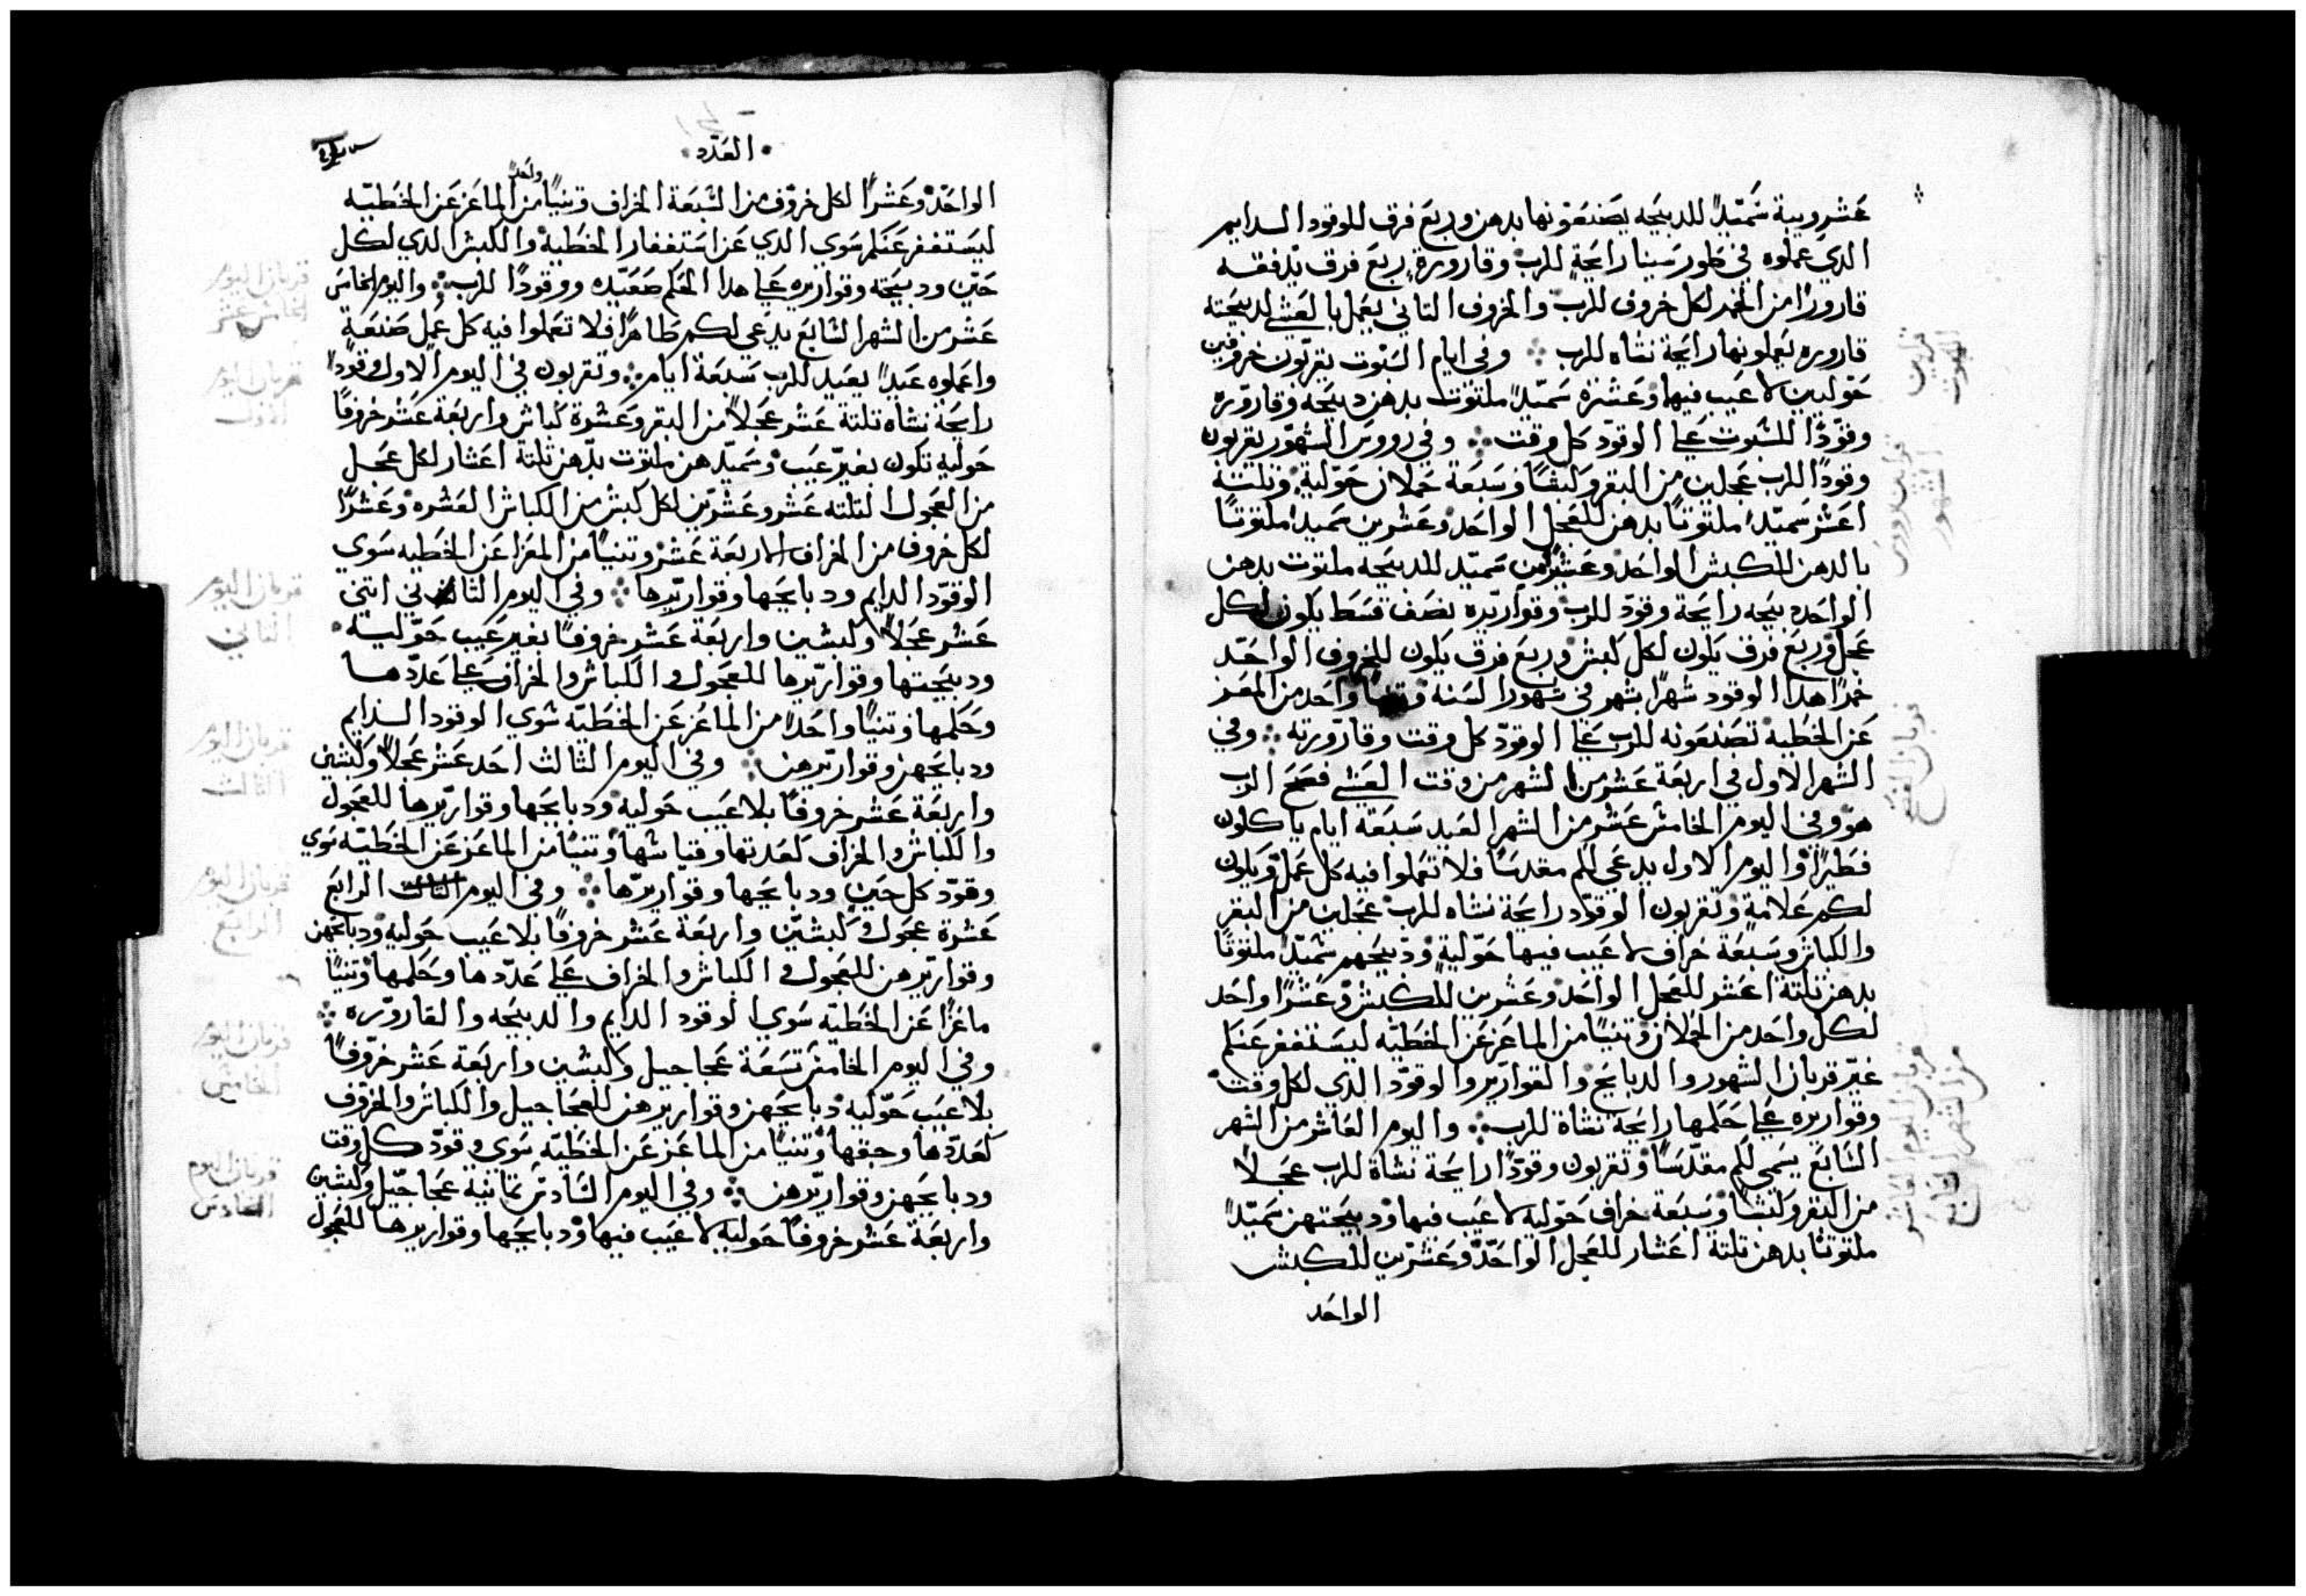 عشر ويبة سميدًا للدبيحه يصنعونها بدهن وربع فرق للوقود الدايم
الدي عملوه في طور سينا رايحة للرب وقارورة ربع فرق تدفقه
قارورا من الخمر لكل خروف للرب والخروف التاني يعمل بالعشي لدبيحته
قاروره يعلونها رايحة نشاه للرب وفي ايام السبوت يقربون خروفين
حوليين لا عيب فيها وعشرة سميدًا ملتوت بدهن دبيحه وقاروره
وقودًا للسبوت على الوقود كل وقت وفي رووس الشهور يقربون
وقودًا للرب عجلين من البقر وكبشًا وسبعة حملان حولية وتلتة
اعشر سميدًا ملتوتًا بدهن للعجل الواحد وعشرين سميدًا ملتوتًا
بالدهن للكبش الواحد وعشرًا من سميد للدبيحه ملتوت بدهن
الواحد دبيحه رايحة وقود للرب وقواريره نصف قسط يكون لكل
عجل وربع فرق يكون لكل كبش وربع فرق يكون للخروف الواحد
خمرًا هدا الوقود شهرًا بشهر في شهور السنه وتنيا واحد من المعز
عن الخطيه تصنعونه للرب على الوقود كل وقت وقارورته وفي
الشهر الاول في اربعة عشر من الشهر من وقت العشي فصح الرب
هو وفي اليوم الخامس عشر من الشهر العيد سبعة ايام ياكلون
فطيرًا واليوم الاول يدعى لكم مقدسًا فلا تعملوا فيه كل عمل ويكون
لكم علامة وتقربون الوقود رايحة نشاه للرب عجلين من البقر
والكباش وسبعة خراف لا عيب فيها حولية ودبيحهم سميدًا ملتوتًا
بدهن تلتة اعشر للعجل الواحد وعشرين للكبش وعشرًا واحد
لكل واحد من الحملان وتنيًا من الماعز عن الخطيه ليستغفر عنكم
غير قربان الشهور والدبايح والقوارير والوقود الدي لكل وقت
وقواريره على حكمها رايحة نشاة للرب واليوم العاشر من الشهر
السابع يسمى لكم مقدسًا وتقربون وقودًا رايحة نشاة للرب عجلًا
من البقر وكبشًا وسبعة خراف حوليه لا عيب فيها ودبيحتهن سميدًا
ملتوتًا بدهن تلتة اعشار للعجل الواحد وعشرين للكبش
الواحد
قربان الفصح
قربان اليوم العاشر
من الشهر السابع
العدد
الواحد وعشرًا لكل خروف من السبعة الخراف وتنيًا واحدًا من الماعز عن الخطيه
ليستغفر عنكم سوي الدي عن استغفار الخطيه والكبش الدي لكل
حين ودبيحته وقواريره على هدا الحكم صعيده ووقودًا للرب واليوم الخامس
عشر من الشهر السابع يدعي لكم طاهرًا فلا تعملوا فيه كل عمل صنعة
واعملوه عيدًا بعيد للرب سبعة ايام وتقربون في اليوم الاول وقودًا
رايحة نشاه تلتة عشر عجلًا من البقر وعشرة كباش واربعة عشر خروفًا
حوليه تكون بغير عيب وسميدهن ملتوت بدهن تلتة اعشار لكل عجل
من العجول التلته عشر وعشرين لكل كبش من الكباش العشره وعشرًا
لكل خروف من الخراف الاربعة عشر وتنيًا من المعزا عن الخطيه سوي
الوقود الدايم ودبايحها وقواريرها وفي اليوم التاني اتني
عشر عجلًا وكبشين واربعة عشر خروفًا بغير عيب حوليه
ودبيحتها وقواريرها للعجول والكباش والخراف على عددها
وحكمها وتنيًا واحدًا من الماعز عن الخطيه سوي الوقود الدايم
ودبايحهن وقواريرهن وفي اليوم التالت احد عشر عجلًا وكبشين
واربعة عشر خروفًا بلا عيب حوليه ودبايحها وقواريرها للعجول
والكباش والخراف لعدتها وقياسها وتنيًا من الماعز عن الخطيه سوي
وقود كل حين ودبايحها وقواريرها وفي اليوم التالت الرابع
عشرة عجول وكبشين واربعة عشر خروفًا بلا عيب حوليه ودبايحهن
وقواريرهن للعجول والكباش والخراف على عددها وحكمها وتنيًا
ماعزًا عن الخطيه سوي الوقود الدايم والدبيحه والقاروره
وفي اليوم الخامس تسعة عجاجيل وكبشين واربعة عشر خروفًا
بلا عيب حوليه دبايحهن وقواريرهن للعجاجيل والكباش والخروف
كعددها وحقها وتنيًا من الماعز عن الخطيه سوى وقود كل وقت
ودبايحهن وقواريرهن وفي اليوم السادس تمانية عجاجيل وكبشين
واربعة عشر خروفًا حوليه لا عيب فيها ودبايحها وقواريرها للعجول
قربان اليوم
الخامس عشر
قربان اليوم
الاول
قربان اليوم
التاني
قربان اليوم
التالت
قربان اليوم
الرابع
قربان اليوم
الخامس
قربان اليوم
السادس